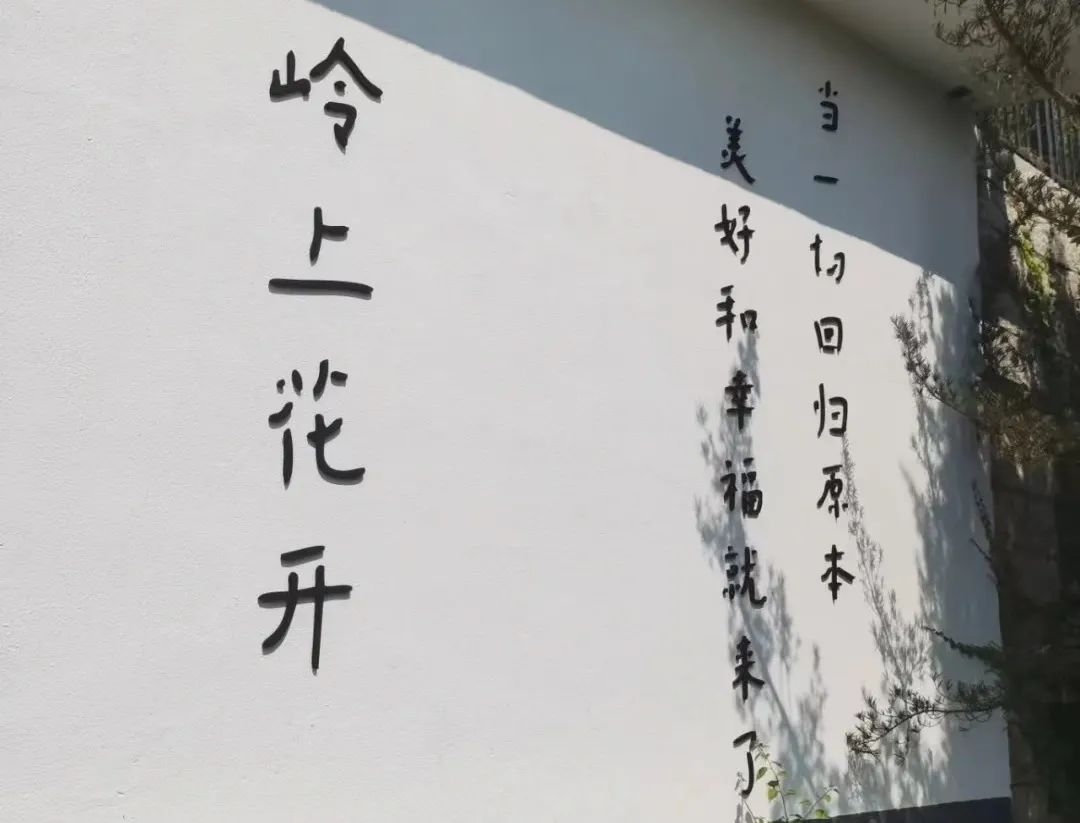 当一切回归原本
美好和幸福就来了
岭上花开